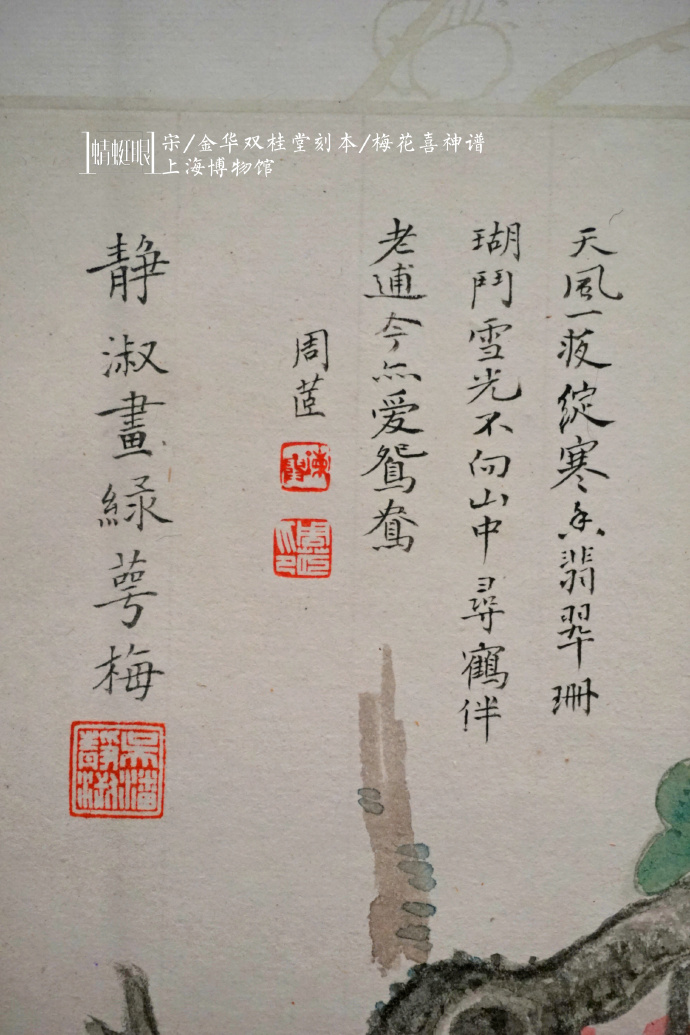 蜻蜓眼
宋/金华双桂堂刻本/梅花喜神谱
上海博物馆
天風一夜綻寒香翡翠珊
瑚鬥雪光不向山中尋鶴伴
老逋今亦愛鴛鴦
周茝
靜淑畫緑萼梅
吳潘靜淑